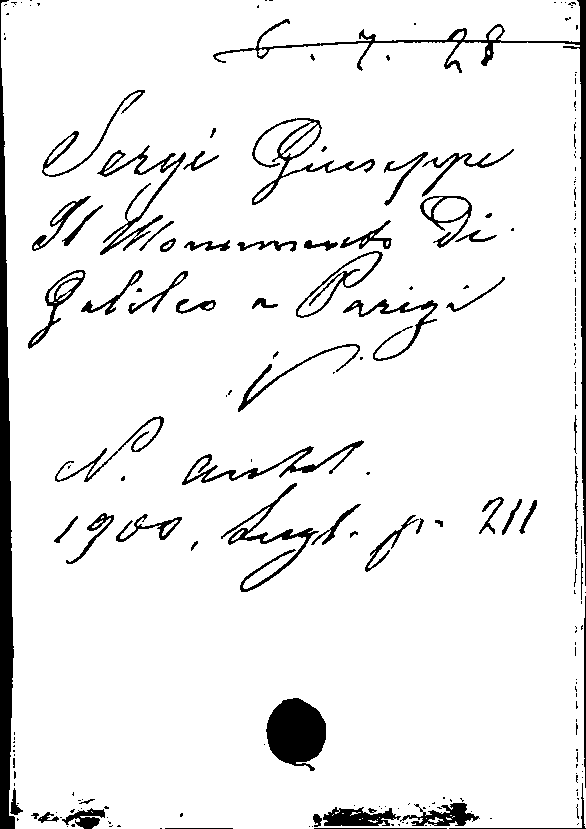 6.7.28
Sergi Giuseppe
Il Monumento Di
Galileo a Parigi
N. Antol.
1900, Lugl. p. 211